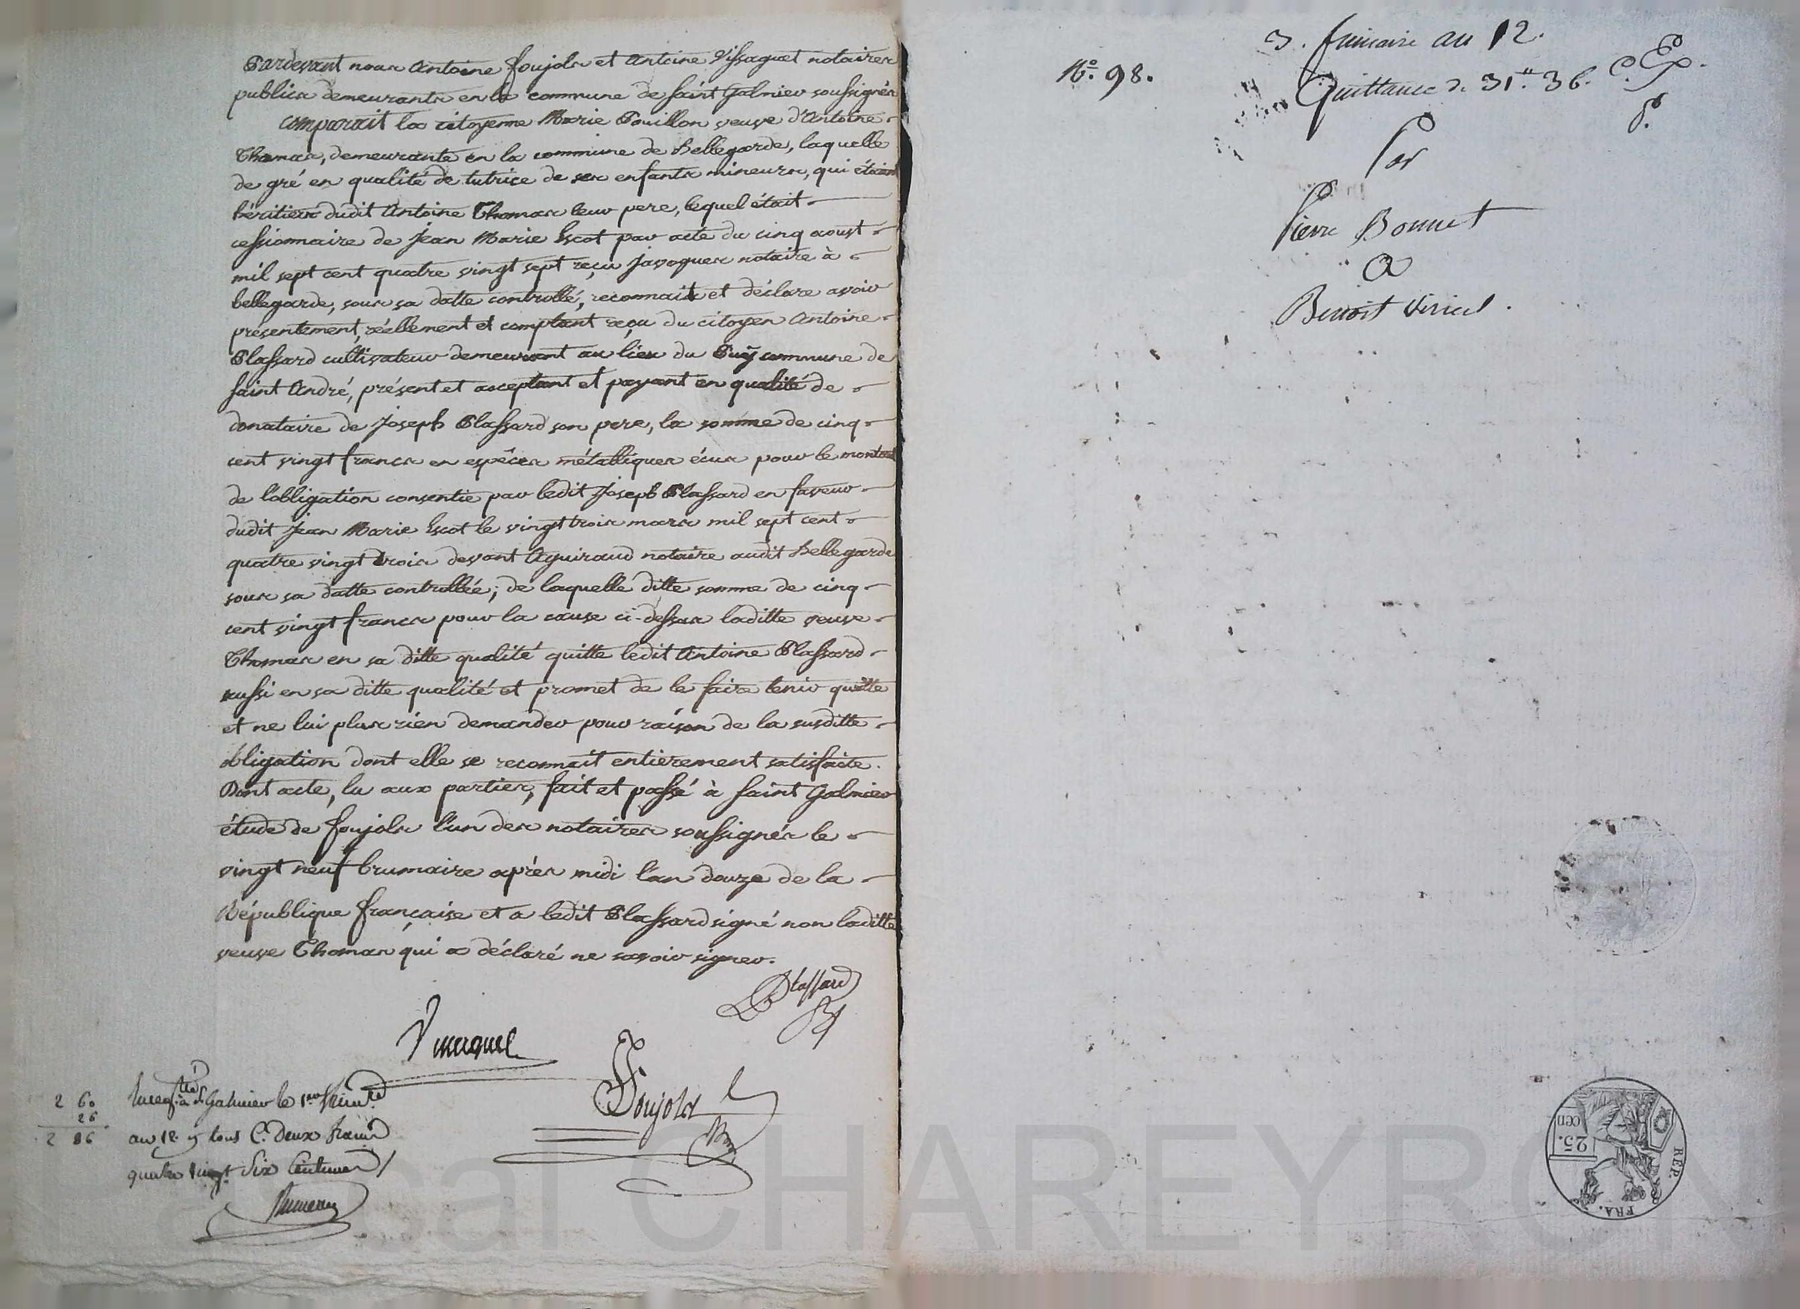 Pardevant nous Antoine foujols et Antoine Vissaguet notaires
publics demeurants en la commune de saint Galmier soussignés
comparait la citoyenne Marie Pouillon veuve d'Antoine
Thomas, demeurante en la commune de Bellegarde, laquelle
de gré en qualité de tutrice de ses enfants mineurs, qui étoient
héritiers dudit Antoine Thomas leur pere, lequel était
cessionnaire de Jean Marie Escot par acte du cinq aoust
mil sept cent quatre vingt sept reçu Javoques notaire à
bellegarde, sous sa datte controllé, reconnait et déclare avoir
présentement, réellement et comptant reçu du citoyen Antoine
Plassard cultivateur demeurant au lieu du Puy commune de
saint André, présent et acceptant et payant en qualité de
donataire de Joseph Plassard son pere, la somme de cinq
cent vingt francs en espéces métalliques écus pour le montant
de l'obligation consentie par ledit Joseph Plassard en faveur
dudit Jean Marie Escot le vingt trois mars mil sept cent
quatre vingt trois devant Aguiraud notaire audit Bellegarde
sous sa datte controllée; de laquelle ditte somme de cinq
cent vingt francs pour la cause ci-dessus laditte veuve
Thomas en sa ditte qualité quitte ledit Antoine Plassard
aussi en sa ditte qualité et promet de le faire tenir quitte
et ne lui plus rien demander pour raison de la susditte
obligation dont elle se reconnait entierement satisfaite.
Dont acte, lu aux parties, fait et passé à saint Galmier
étude de foujols l'un des notaires soussignés le
vingt neuf brumaire après midi l'an douze de la
République française et a ledit Plassard signé non laditte
veuve Thomas qui a déclaré ne savoir signer.
Plassard
Foujols
2 60
26
2 86
à St Galmier le 1er frim.re
an 12 deux francs
quatre vingt six centimes
N.o 98.
3. frimaire an 12.
Quittance de 31.tt 36.
Par
Pierre Bonnet
A
Benoit Viricel.
25.
cen
REP.
FRA.
CHAREYRON